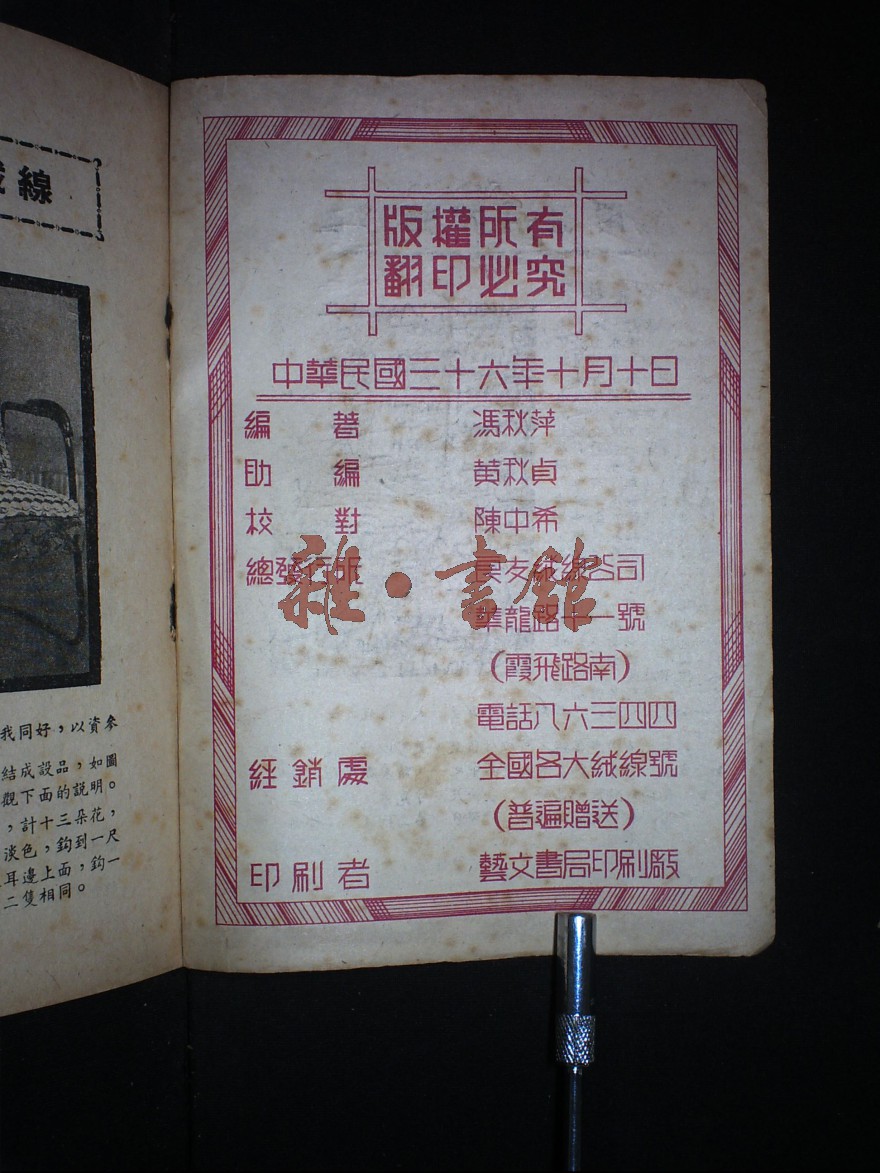 線
我同好，以資參
結成設品，如圖
觀下面的説明。
，計十三朵花，
淡色，鈎到一尺
耳邊上面，鈎一
二隻相同。
版權所有
翻印必究
中華民國三十六年十月十日
編著 馮秋萍
助編 黄秋貞
校對 陳中希
總發行所 良友絨線公司
華龍路十一號
（霞飛路南）
電話八六三四四
經銷處 全國各大絨線號
（普遍贈送）
印刷者 藝文書局印刷廠
雜·書館